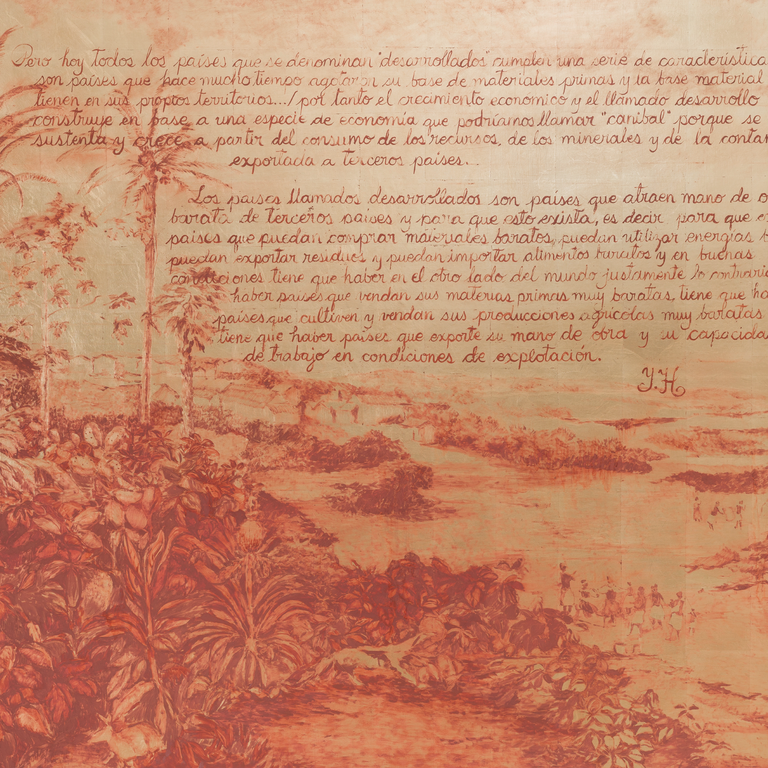 Pero hoy todos los países que se denominan "desarrollados" cumplen una serie de característica
son países que hace mucho tiempo agotaron su base de materiales primas y la base material
tienen en sus propios territorios.../ por tanto el crecimiento económico y el llamado desarrollo
construye en base a una especie de economía que podríamos llamar "caníbal" porque se
sustenta y crece a partir del consumo de los recursos, de los minerales y de la conta
exportada a terceros países...
Los países llamados desarrollados son países que atraen mano de o
barata de terceros países y para que esto exista, es decir, para que
países que puedan comprar materiales baratos, puedan utilizar energías b
puedan exportar residuos y puedan importar alimentos baratos y en buenas
condiciones tiene que haber en el otro lado del mundo justamente lo contrario
haber países que vendan sus materias primas muy baratas, tiene que ha
países que cultiven y vendan sus producciones agrícolas muy baratas
tiene que haber países que exporte su mano de obra y su capacida
de trabajo en condiciones de explotación.
Y.H